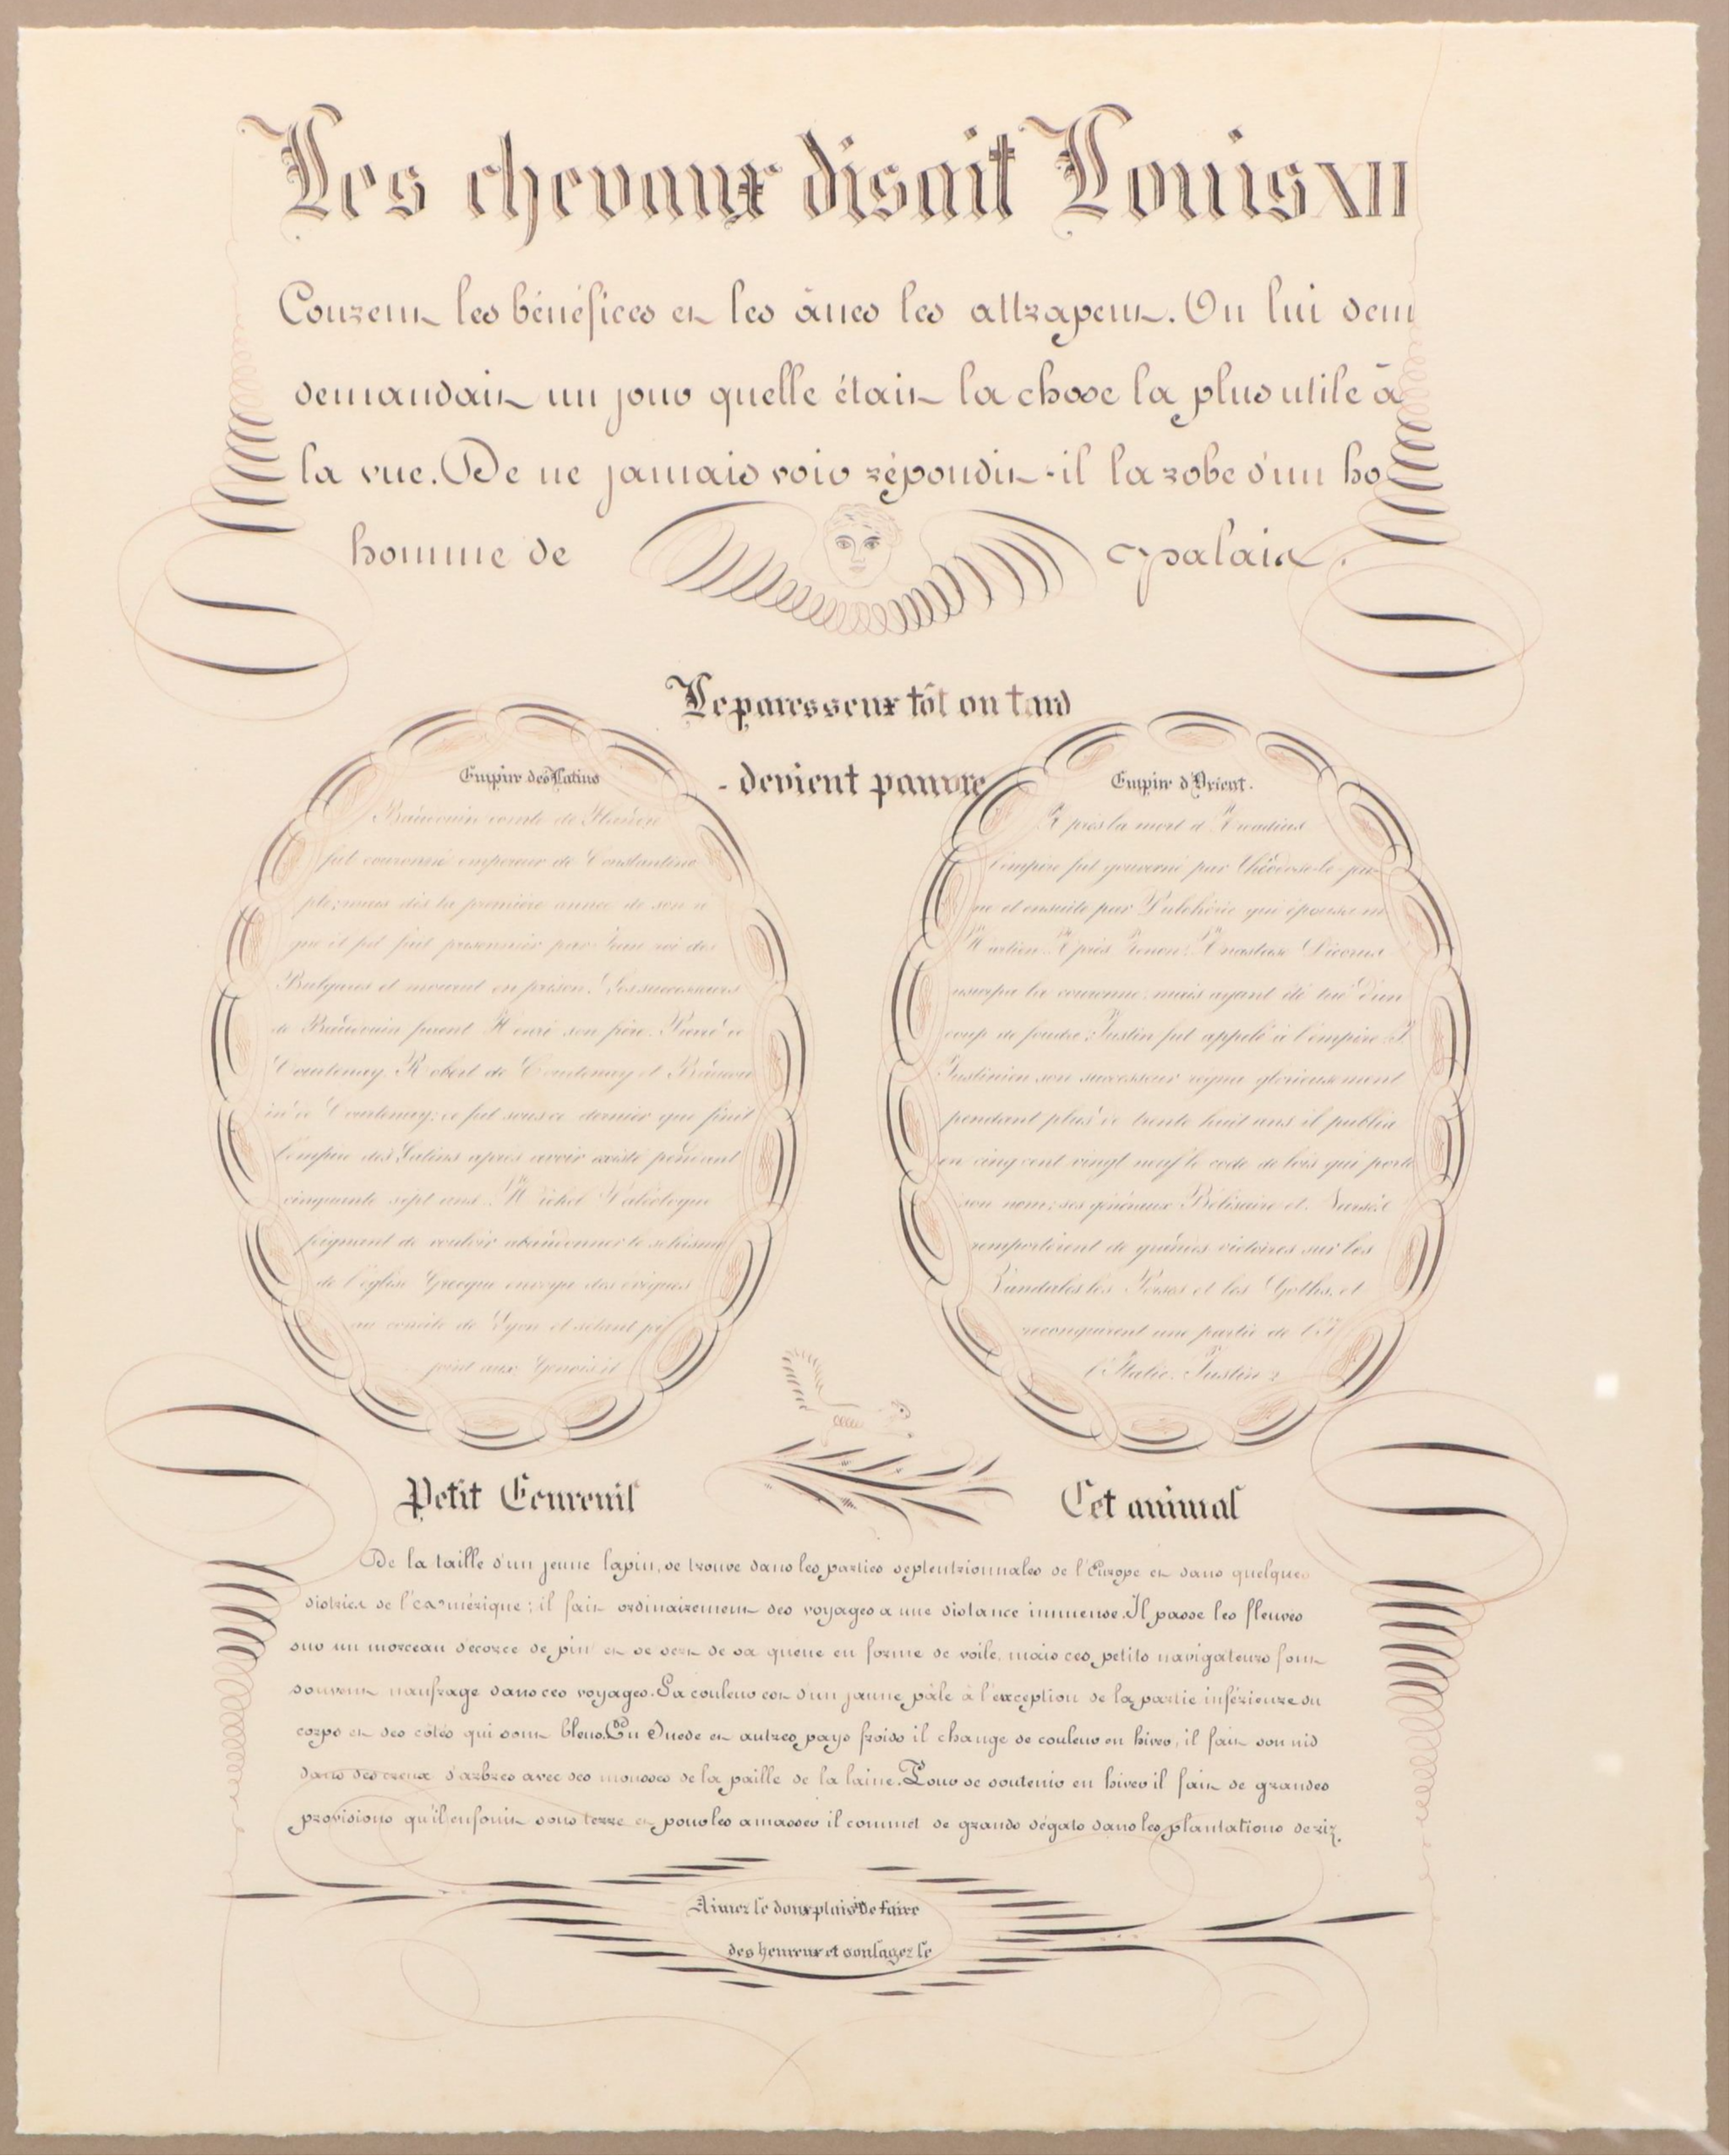 Les chevaux disait Louis XII
Courent les bénéfices et les ânes les attrapent. On lui dem
demandait un jour quelle était la chose la plus utile à
la vue. De ne jamais voir répondit-il la robe d'un ho
homme de palais.
Le paresseux tôt ou tard
- devient pauvre
Empire des Latins
Baudouin comte de Flandre
fut couronné empereur de Constantino
ple; mais dès la première année de son rè
gne il fut fait prisonnier par roi des
Bulgares et mourut en prison. Ses successeurs
de Baudouin furent Henri son frère. Pierre de
Courtenay. Robert de Courtenay et Baudou
in de Courtenay; ce fut sous ce dernier que finit
l'empire des Latins après avoir existé pendant
cinquante sept ans. Michel Paléologue
feignant de vouloir abandonner le schisme
de l'église Grecque envoya des évêques
au concile de Lyon et s'étant
joint aux Genois il
Empire d'Orient.
Après la mort d'Arcadius
l'empire fut gouverné par Théodose-le-jeu
ne et ensuite par Pulchérie qui épousa
Martien. Après Zenon; Anastase Dicorus
usurpa la couronne; mais ayant été tué d'un
coup de foudre; Justin fut appelé à l'empire.
Justinien son successeur régna glorieusement
pendant plus de trente huit ans il publia
en cinq cent vingt neuf le code de lois qui porte
son nom; ses généraux Bélisaire et Narsès
remportèrent de grandes victoires sur les
Vandales les Perses et les Goths, et
reconquirent une partie de l'I
l'Italie. Justin 2
Petit Ecureuil Cet animal
De la taille d'un jeune lapin, se trouve dans les parties septentrionnales de l'Europe et dans quelques
districts de l'Amérique; il fait ordinairement des voyages a une distance immense. Il passe les fleuves
sur un morceau d'écorce de pin et se sert de sa queue en forme de voile, mais ces petits navigateurs font
souvent naufrage dans ces voyages. Sa couleur est d'un jaune pâle à l'exception de la partie inférieure du
corps et des côtés qui sont bleus. En Suede et autres pays froids il change de couleur en hiver, il fait son nid
dans des creux d'arbres avec des mousses de la paille de la laine. Pour se soutenir en hiver il fait de grandes
provisions qu'il enfouit sous terre et pour les amasser il commet de grands dégats dans les plantations de riz.
Aimez le doux plaisir de faire
des heureux et soulagez le